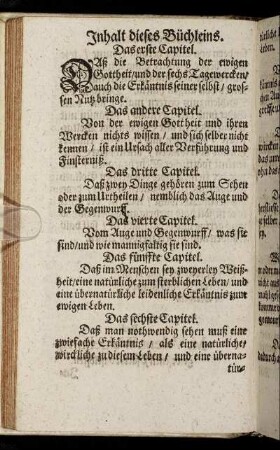 Inhalt dieses Büchleins.
Das erste Capitel.
DAß die Betrachtung der ewigen
Gottheit/und der sechs Tagewercken/
auch die Erkäntnis seiner selbst/ gros-
sen Nutz bringe.
Das andere Capitel.
Von der ewigen Gottheit und ihren
Wercken nichts wissen/ und sich selber nicht
kennen/ ist ein Ursach aller Verführung und
Finsterniß.
Das dritte Capitel.
Daß zwey Dinge gehören zum Sehen
oder zum Urtheilen/ nemblich das Auge und
der Gegenwurff.
Das vierte Capitel.
Vom Auge und Gegenwurff/ was sie
sind/und wie mannigfaltig sie sind.
Das fünffte Capitel.
Daß im Menschen sey zweyerley Weiß-
heit/eine natürliche zum sterblichen Leben/ und
eine übernatürliche leidenliche Erkäntnis zum
ewigen Leben.
Das sechste Capitel.
Daß man nothwendig sehen muß eine
zwiefache Erkäntnis/ als eine natürliche/
wirckliche zu diesem Leben/ und eine überna-
tür-